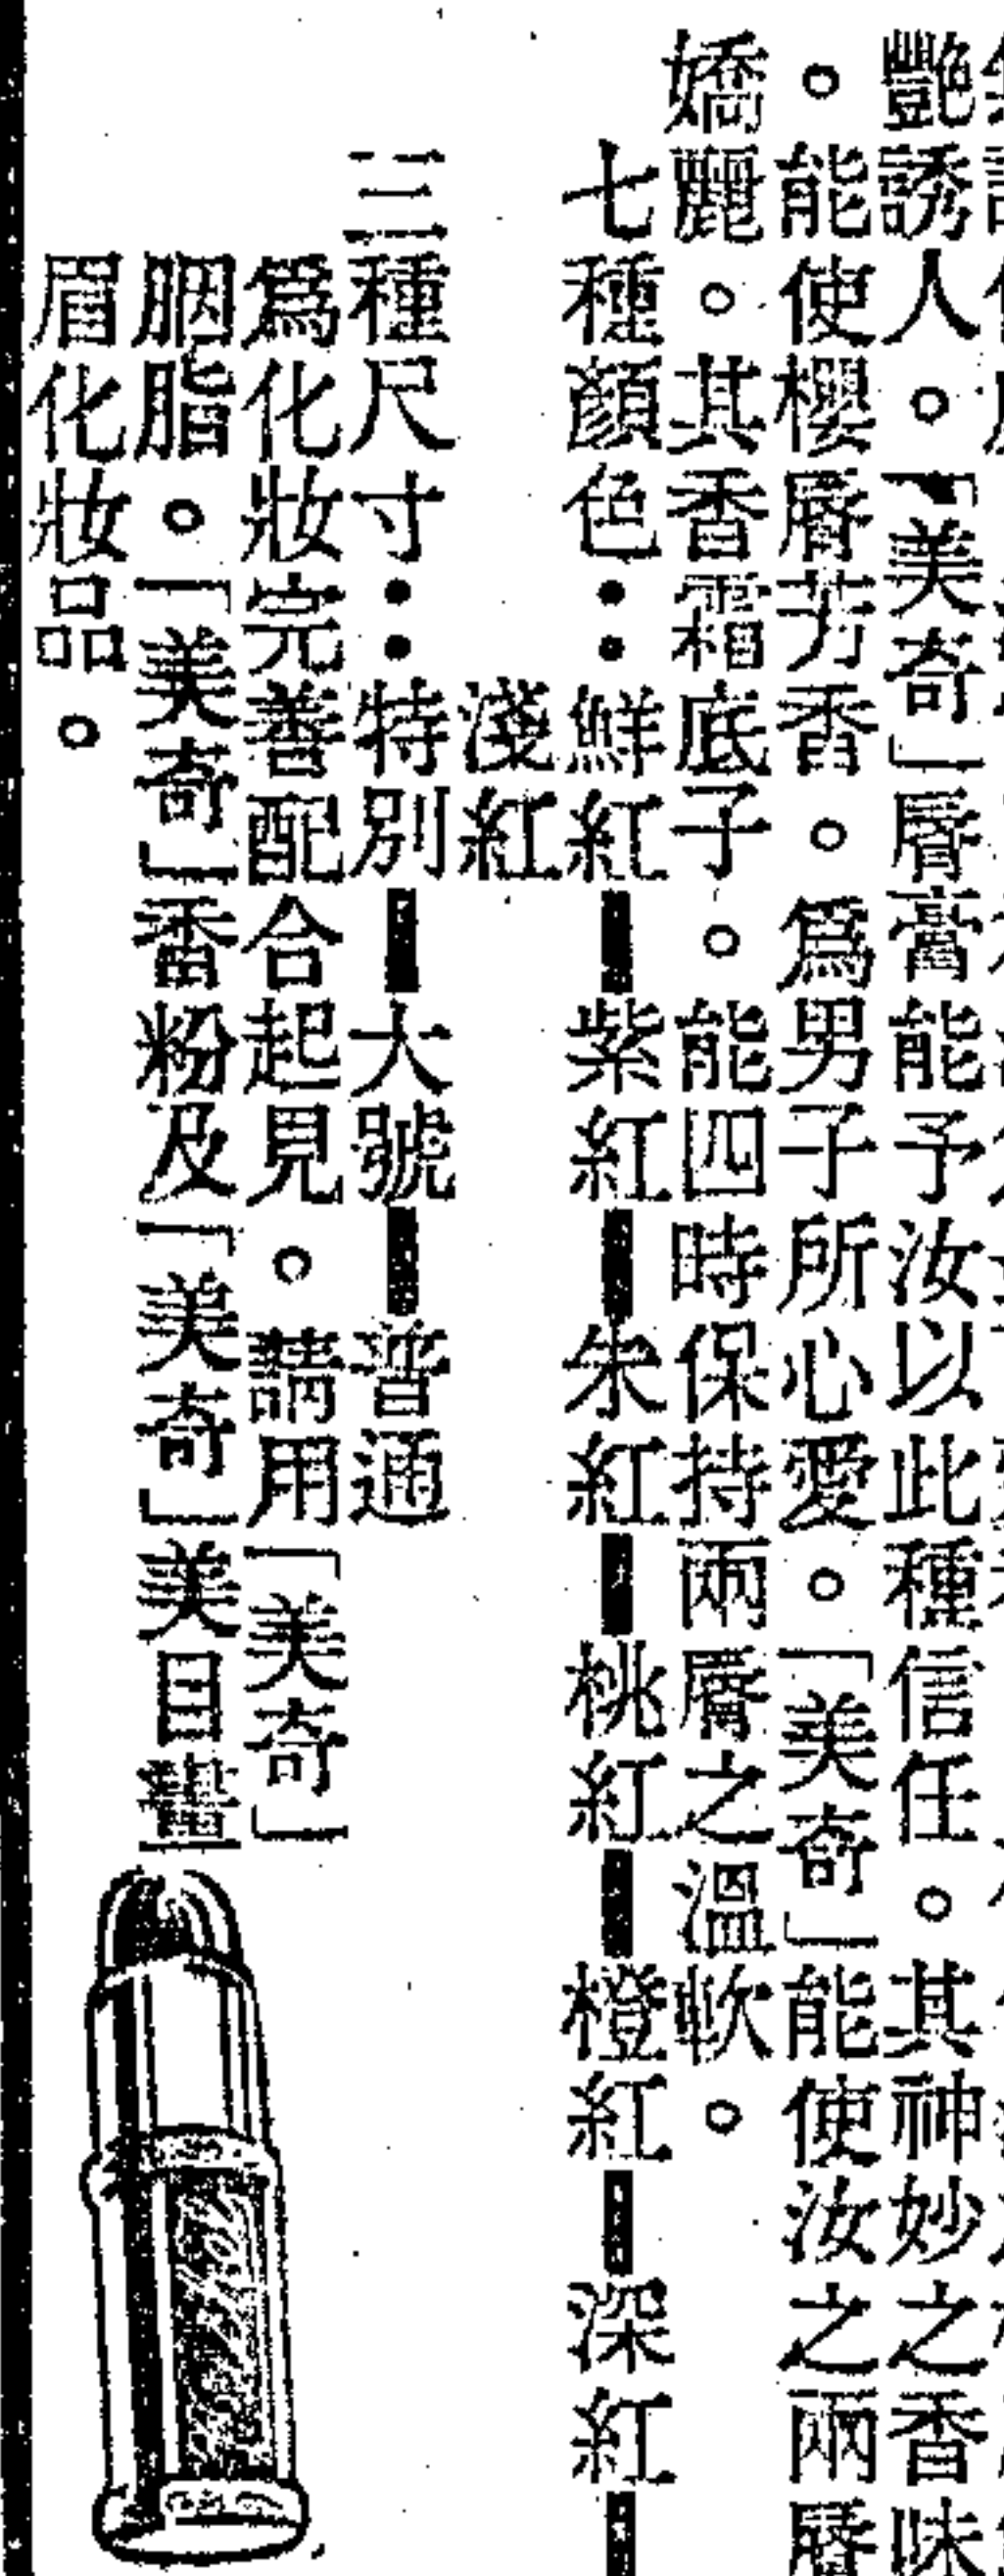 艷誘人。「美奇」脣膏能予汝以此種信任。其神妙之香味
。能使櫻脣芳香。爲男子所心愛。「美奇」能使汝之兩脣
嬌麗。其香霜底子。能四時保持兩脣之溫軟。
七種顏色：鮮紅—紫紅—朱紅—桃紅—橙紅—深紅—
淺紅
三種尺寸：特別—大號—普通
爲化妝完善配合起見。請用「美奇」
胭脂。「美奇」香粉及「美奇」美目畫
眉化妝品。